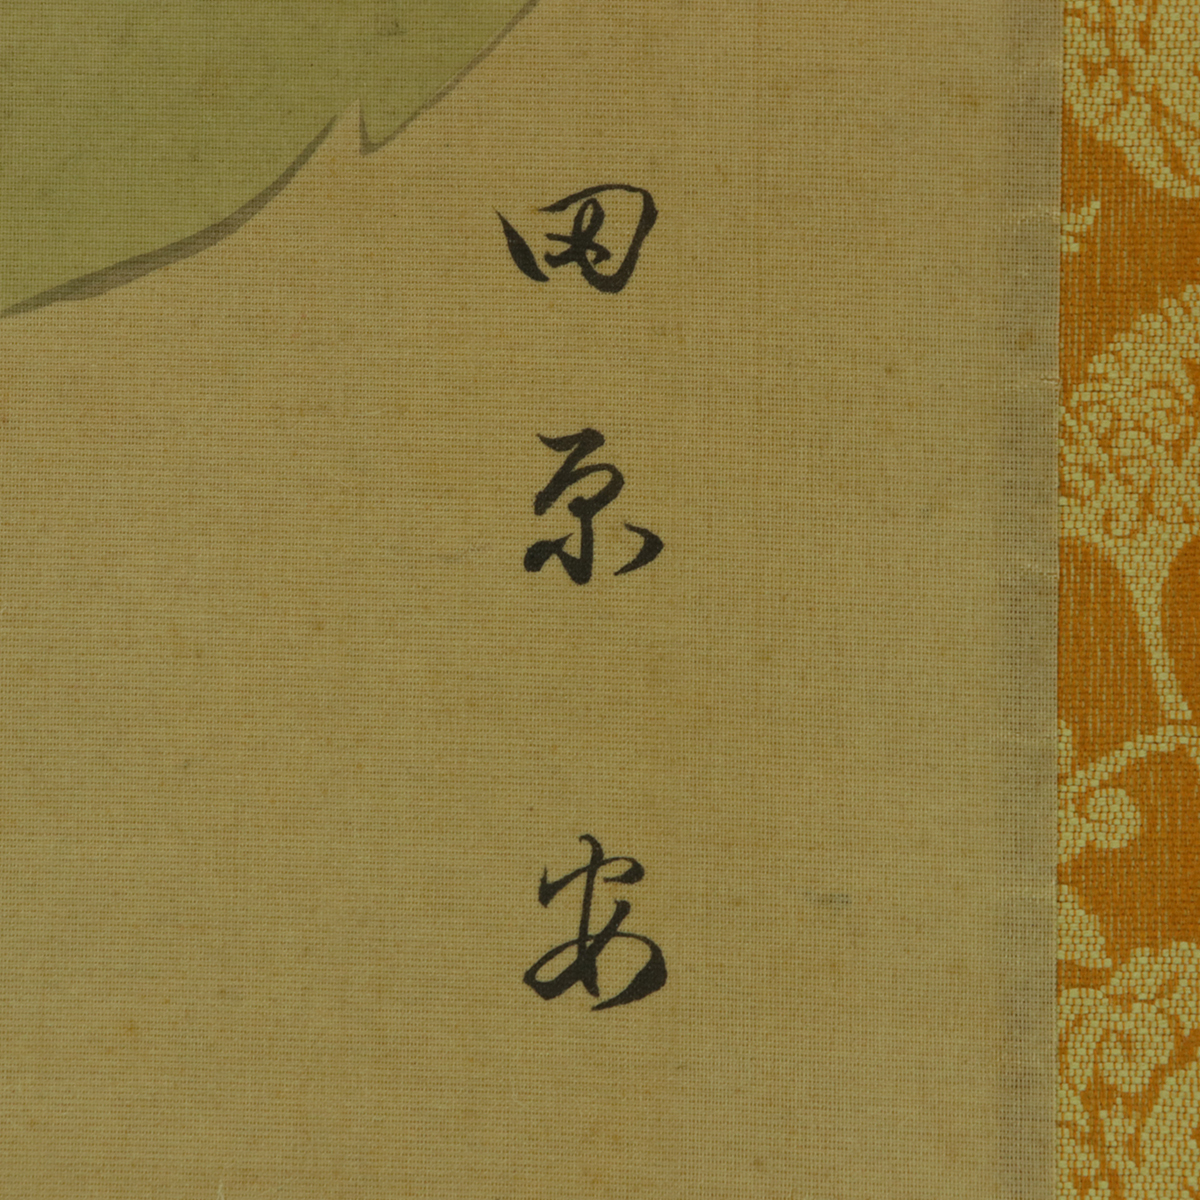 田原安